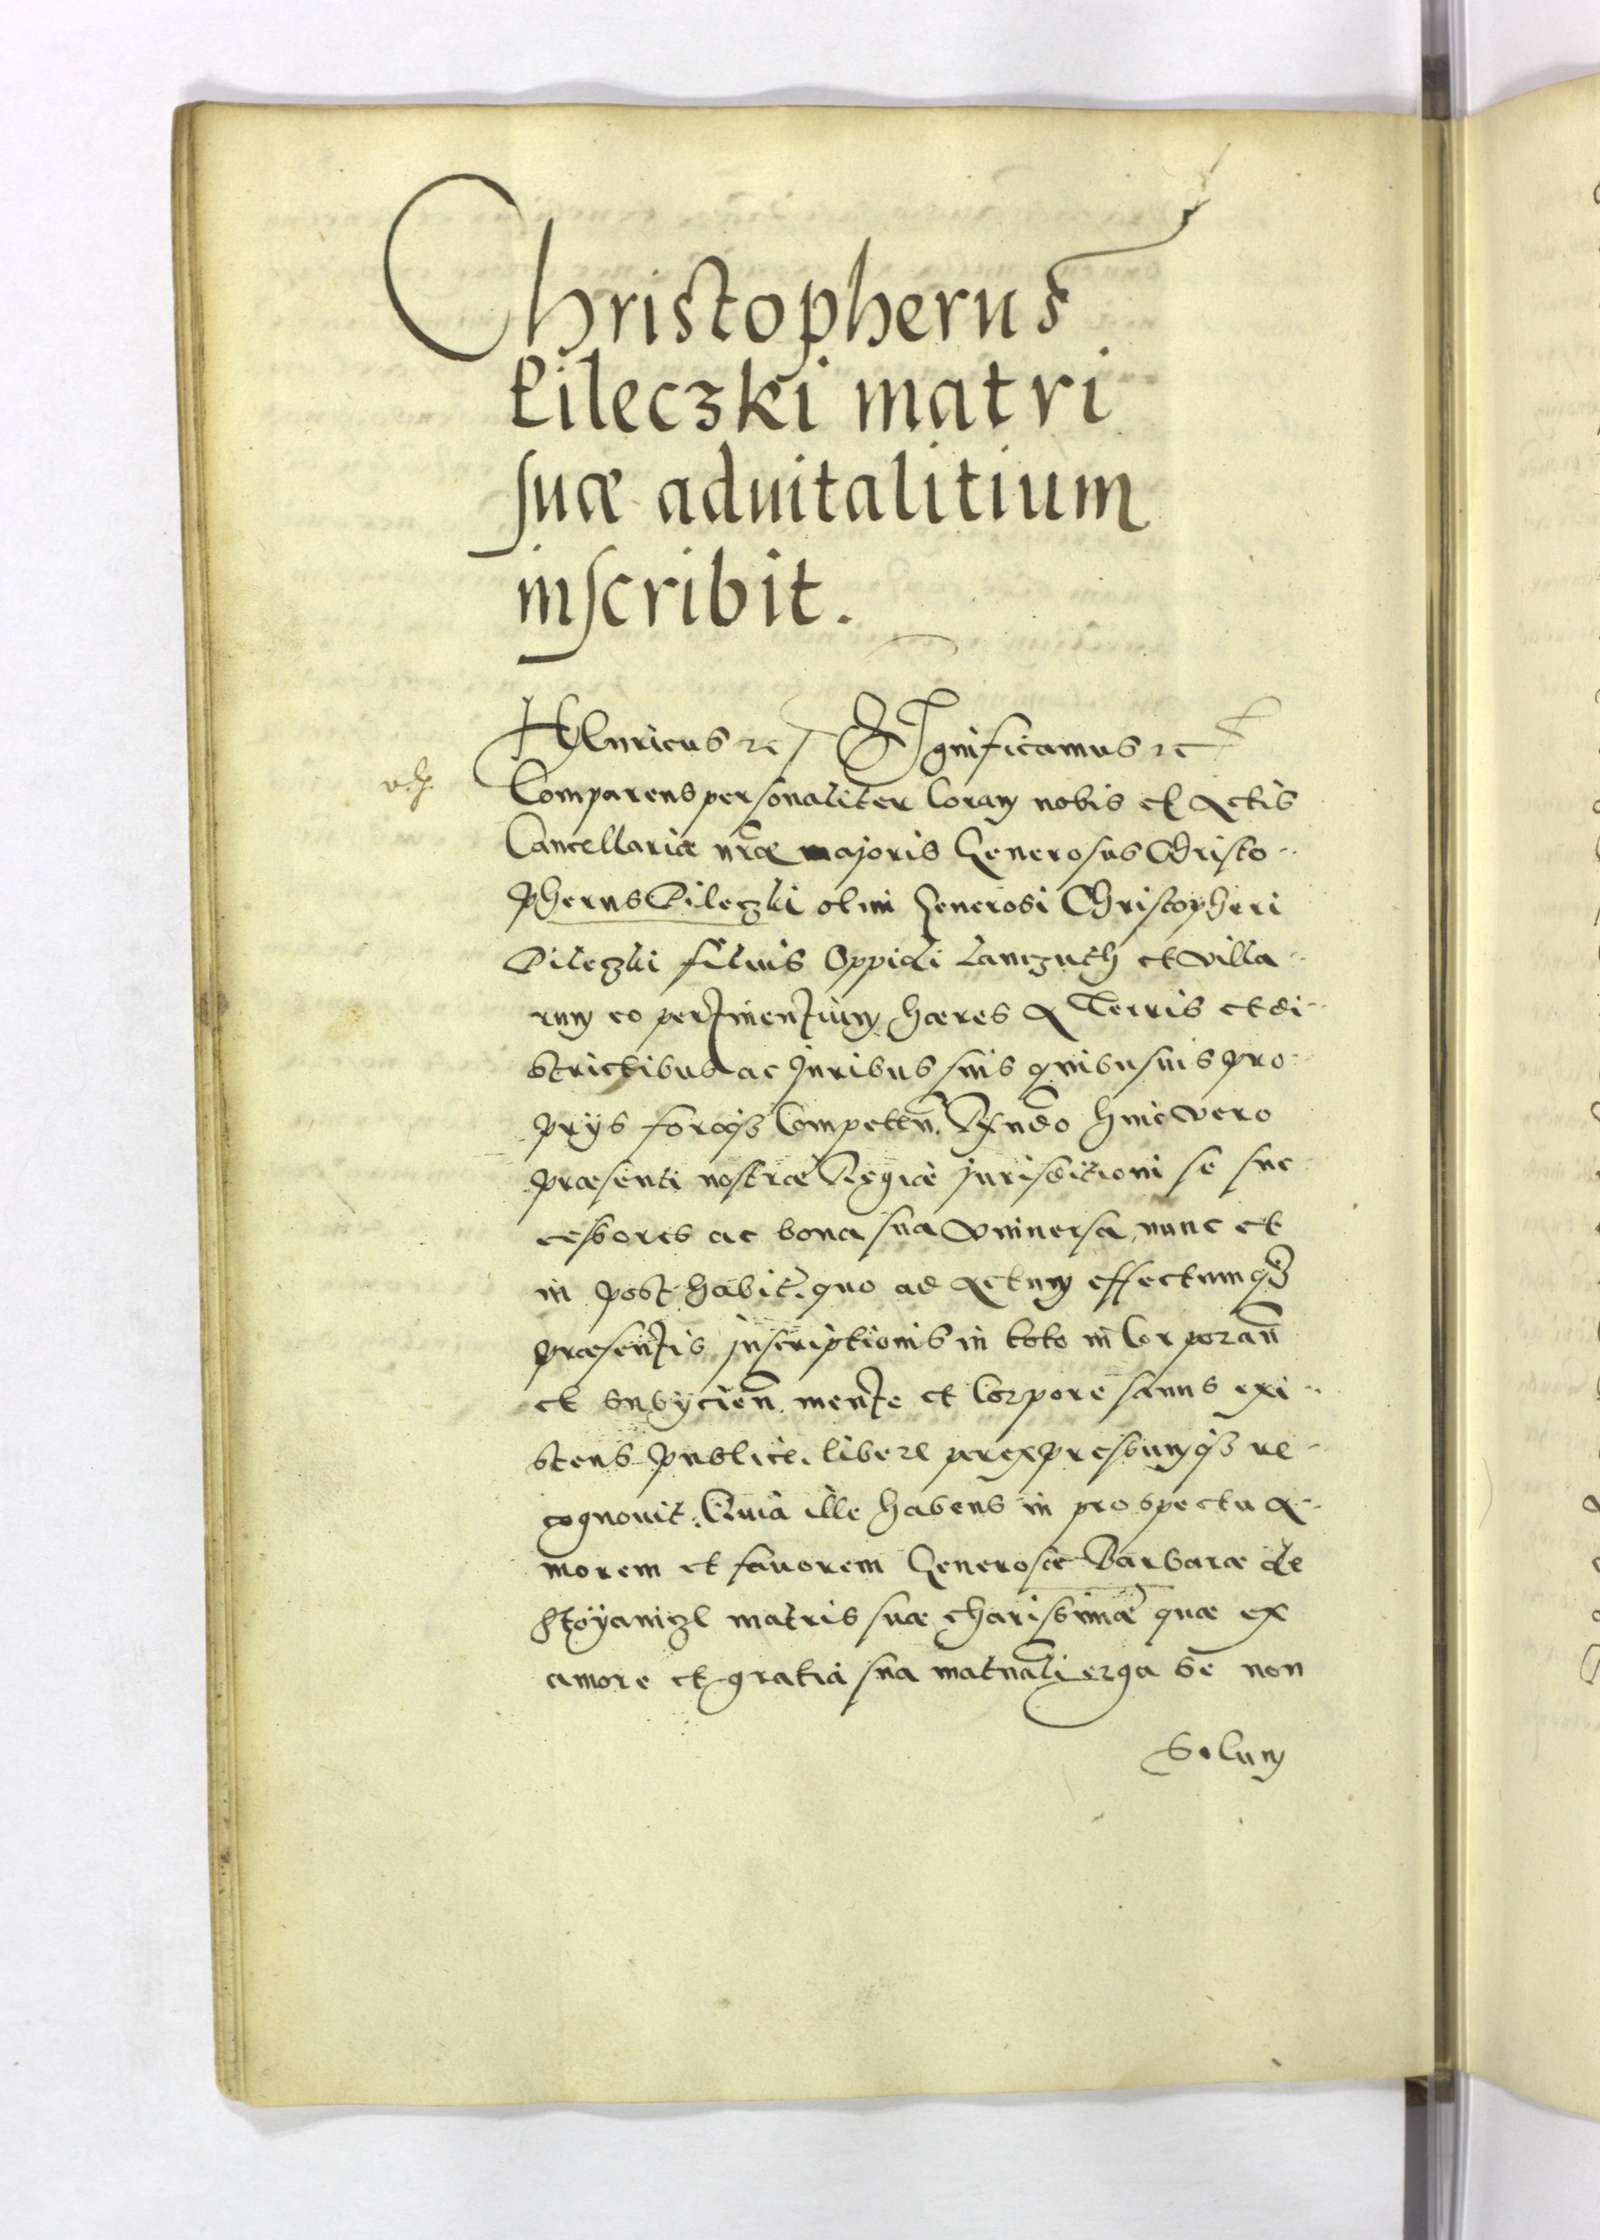 Christopherus
Pileczki matri
suæ aduitalitium
inscribit.
Henricus etc Significamus etc
Comparens personaliter Coram nobis et Actis
Cancellariæ nr̃æ majoris Generosus Christo-
pherus Pileczki olim Generosi Christopheri
Pileczki filius Oppidi Lanczuth et villa-
rum eo pertinentium hæres A Terris et di-
strictibus ac Juribus suis quibusuis pro-
prijs foroq3 Competen̄. Recedn̄do huic vero
præsenti nostræ Regiæ jurisditioni se suc
cessores ac bona sua vniuersa, nunc et
in post habit̃. quo ad Actum effectumq3
præsentis jnscriptionis in toto inCorporan̄
et subijcien̄. mente et Corpore sanus exi-
stens publice. libere perexpressumq3 re-
cognouit. Quia ille habens in prospectu a-
morem et fauorem Generosæ Barbaræ de
Stoÿanicze matris suæ charissimæ quæ ex
amore et gratia sua mat̃nali erga se non
Solum